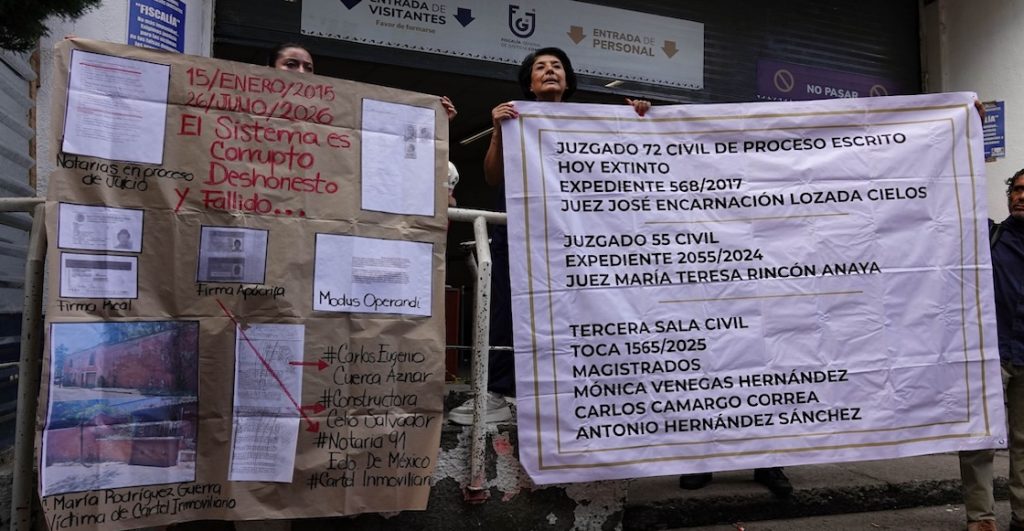 "FISCALÍA"
ENTRADA DE
VISITANTES
Favor de formarse
FGJ
ENTRADA DE
PERSONAL
NO PASAR
15/ENERO/2015
26/JULIO/2026
El Sistema es
Corrupto
Deshonesto
y Fallido...
Notarias en proceso
de Juicio
Firma Real
Firma Apócrifa
Modus Operandi
#Carlos Eugenio
Cuenca Aznar
#Constructora
Celio Salvador
#Notaria 91
Edo De México
#Cartel Inmoviliari
María Rodríguez Guerra
Víctima de Cartel Inmoviliario
JUZGADO 72 CIVIL DE PROCESO ESCRITO
HOY EXTINTO
EXPEDIENTE 568/2017
JUEZ JOSÉ ENCARNACIÓN LOZADA CIELOS
JUZGADO 55 CIVIL
EXPEDIENTE 2055/2024
JUEZ MARÍA TERESA RINCÓN ANAYA
TERCERA SALA CIVIL
TOCA 1565/2025
MAGISTRADOS
MÓNICA VENEGAS HERNÁNDEZ
CARLOS CAMARGO CORREA
ANTONIO HERNÁNDEZ SÁNCHEZ